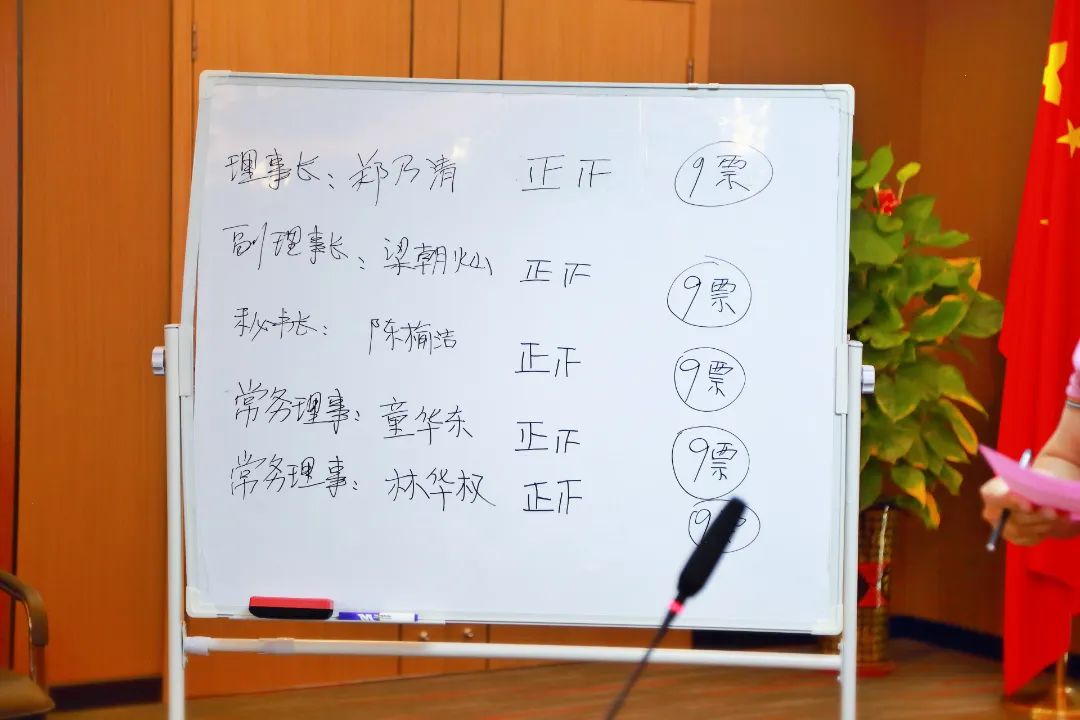 理事长:郑乃清 正正 9票
副理事长:梁朝灿 正正 9票
秘书长:陈榆洁 正正 9票
常务理事:童华东 正正 9票
常务理事:林华权 正正 9